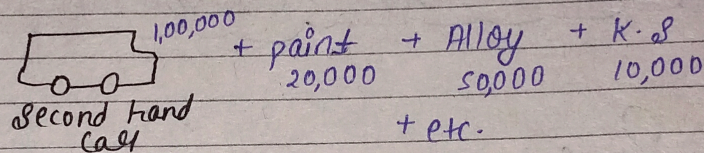 1,00,000 + paint + Alloy + K.S
20,000 50,000 10,000
second hand + etc.
Car